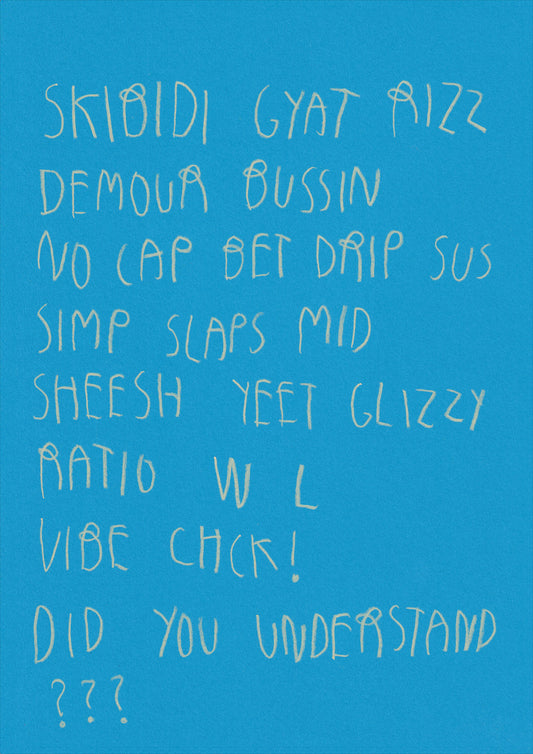 SKIBIDI GYAT RIZZ
DEMOUR BUSSIN
NO CAP BET DRIP SUS
SIMP SLAPS MID
SHEESH YEET GLIZZY
RATIO W L
VIBE CHCK!
DID YOU UNDERSTAND
???